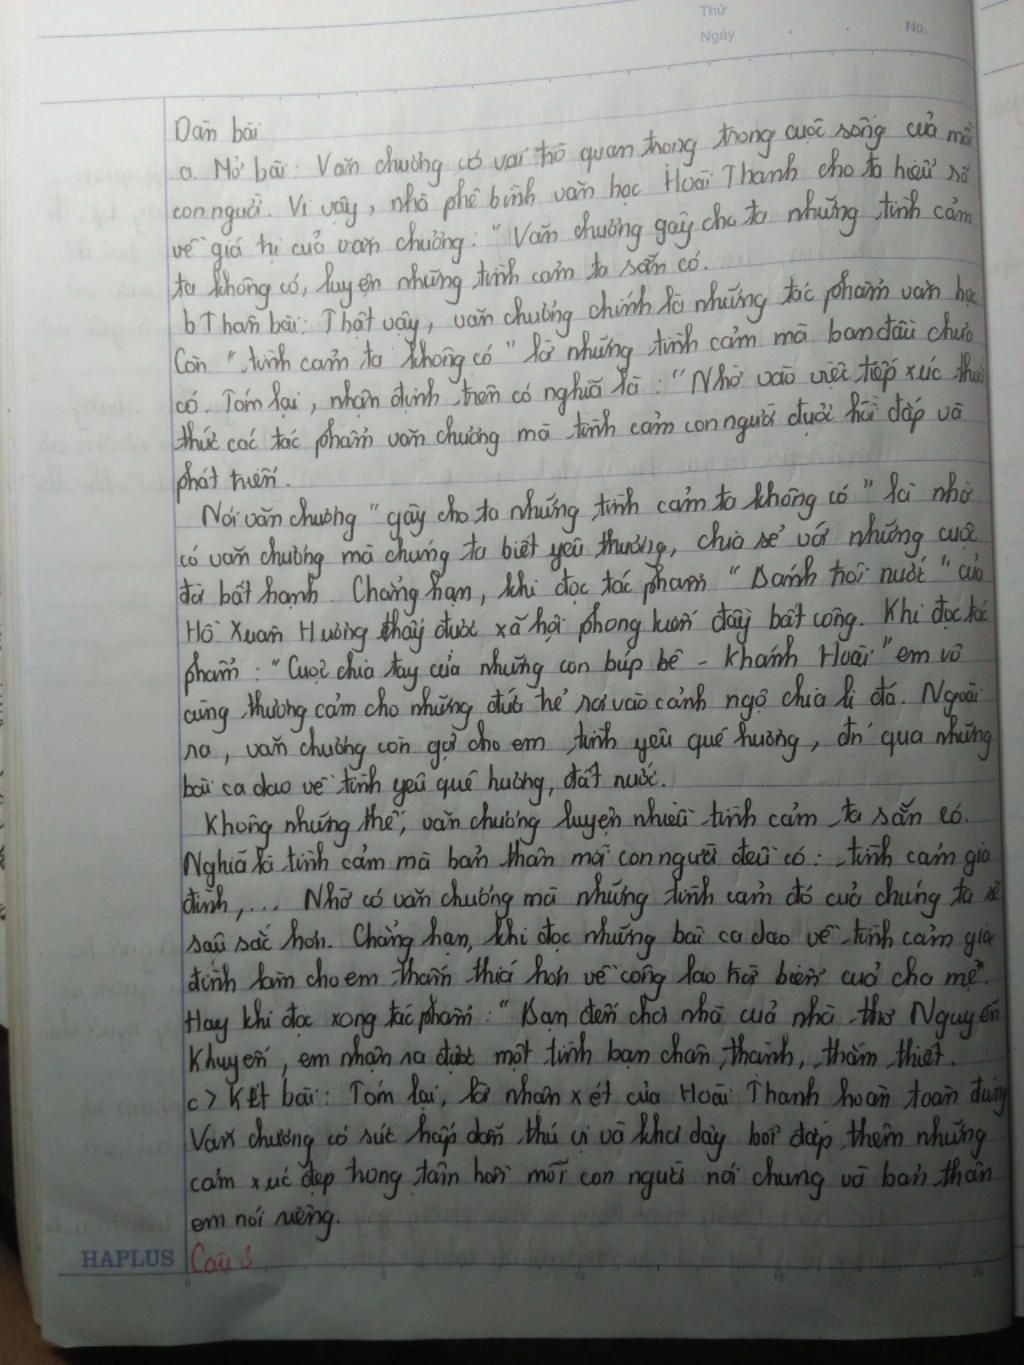 Thứ
Ngày
No.
Dàn bài
a. Mở bài: Văn chương có vai trò quan trọng trong cuộc sống của mỗi
con người. Vì vậy, nhà phê bình văn học Hoài Thanh cho ta hiểu rõ
về giá trị của văn chương: "Văn chương gây cho ta những tình cảm
ta không có, luyện những tình cảm ta sẵn có.
b Thân bài: Thật vậy, văn chương chính là những tác phẩm văn học
Còn "tình cảm ta không có" là những tình cảm mà ban đầu chưa
có. Tóm lại, nhận định trên có nghĩa là: "Nhờ vào việc tiếp xúc thưởng
thức các tác phẩm văn chương mà tình cảm con người được hồi đáp và
phát triển.
Nói văn chương "gây cho ta những tình cảm ta không có" là nhờ
có văn chương mà chúng ta biết yêu thương, chia sẻ với những cuộc
đời bất hạnh. Chẳng hạn, khi đọc tác phẩm "Bánh trôi nước" của
Hồ Xuân Hương thấy được xã hội phong kiến đầy bất công. Khi đọc tác
phẩm: "Cuộc chia tay của những con búp bê - Khánh Hoài" em vô
cùng thương cảm cho những đứa trẻ rơi vào cảnh ngộ chia li đó. Ngoài
ra, văn chương còn gợi cho em tình yêu quê hương, đn qua những
bài ca dao về tình yêu quê hương, đất nước.
Không những thế, văn chương luyện nhiều tình cảm ta sẵn có.
Nghĩa là tình cảm mà bản thân mỗi con người đều có: tình cảm gia
đình,... Nhờ có văn chương mà những tình cảm đó của chúng ta sẽ
sâu sắc hơn. Chẳng hạn, khi đọc những bài ca dao về tình cảm gia
đình làm cho em thấm thía hơn về công lao trời biển của cha mẹ.
Hay khi đọc xong tác phẩm: "Bạn đến chơi nhà của nhà thơ Nguyễn
Khuyến, em nhận ra được một tình bạn chân thành, thắm thiết.
c> Kết bài: Tóm lại, lời nhận xét của Hoài Thanh hoàn toàn đúng
Văn chương có sức hấp dẫn thú vị và khơi dậy bồi đắp thêm những
cảm xúc đẹp trong tâm hồn mỗi con người nói chung và bản thân
em nói riêng.
HAPLUS
Câu 3
0 5 10 15 20